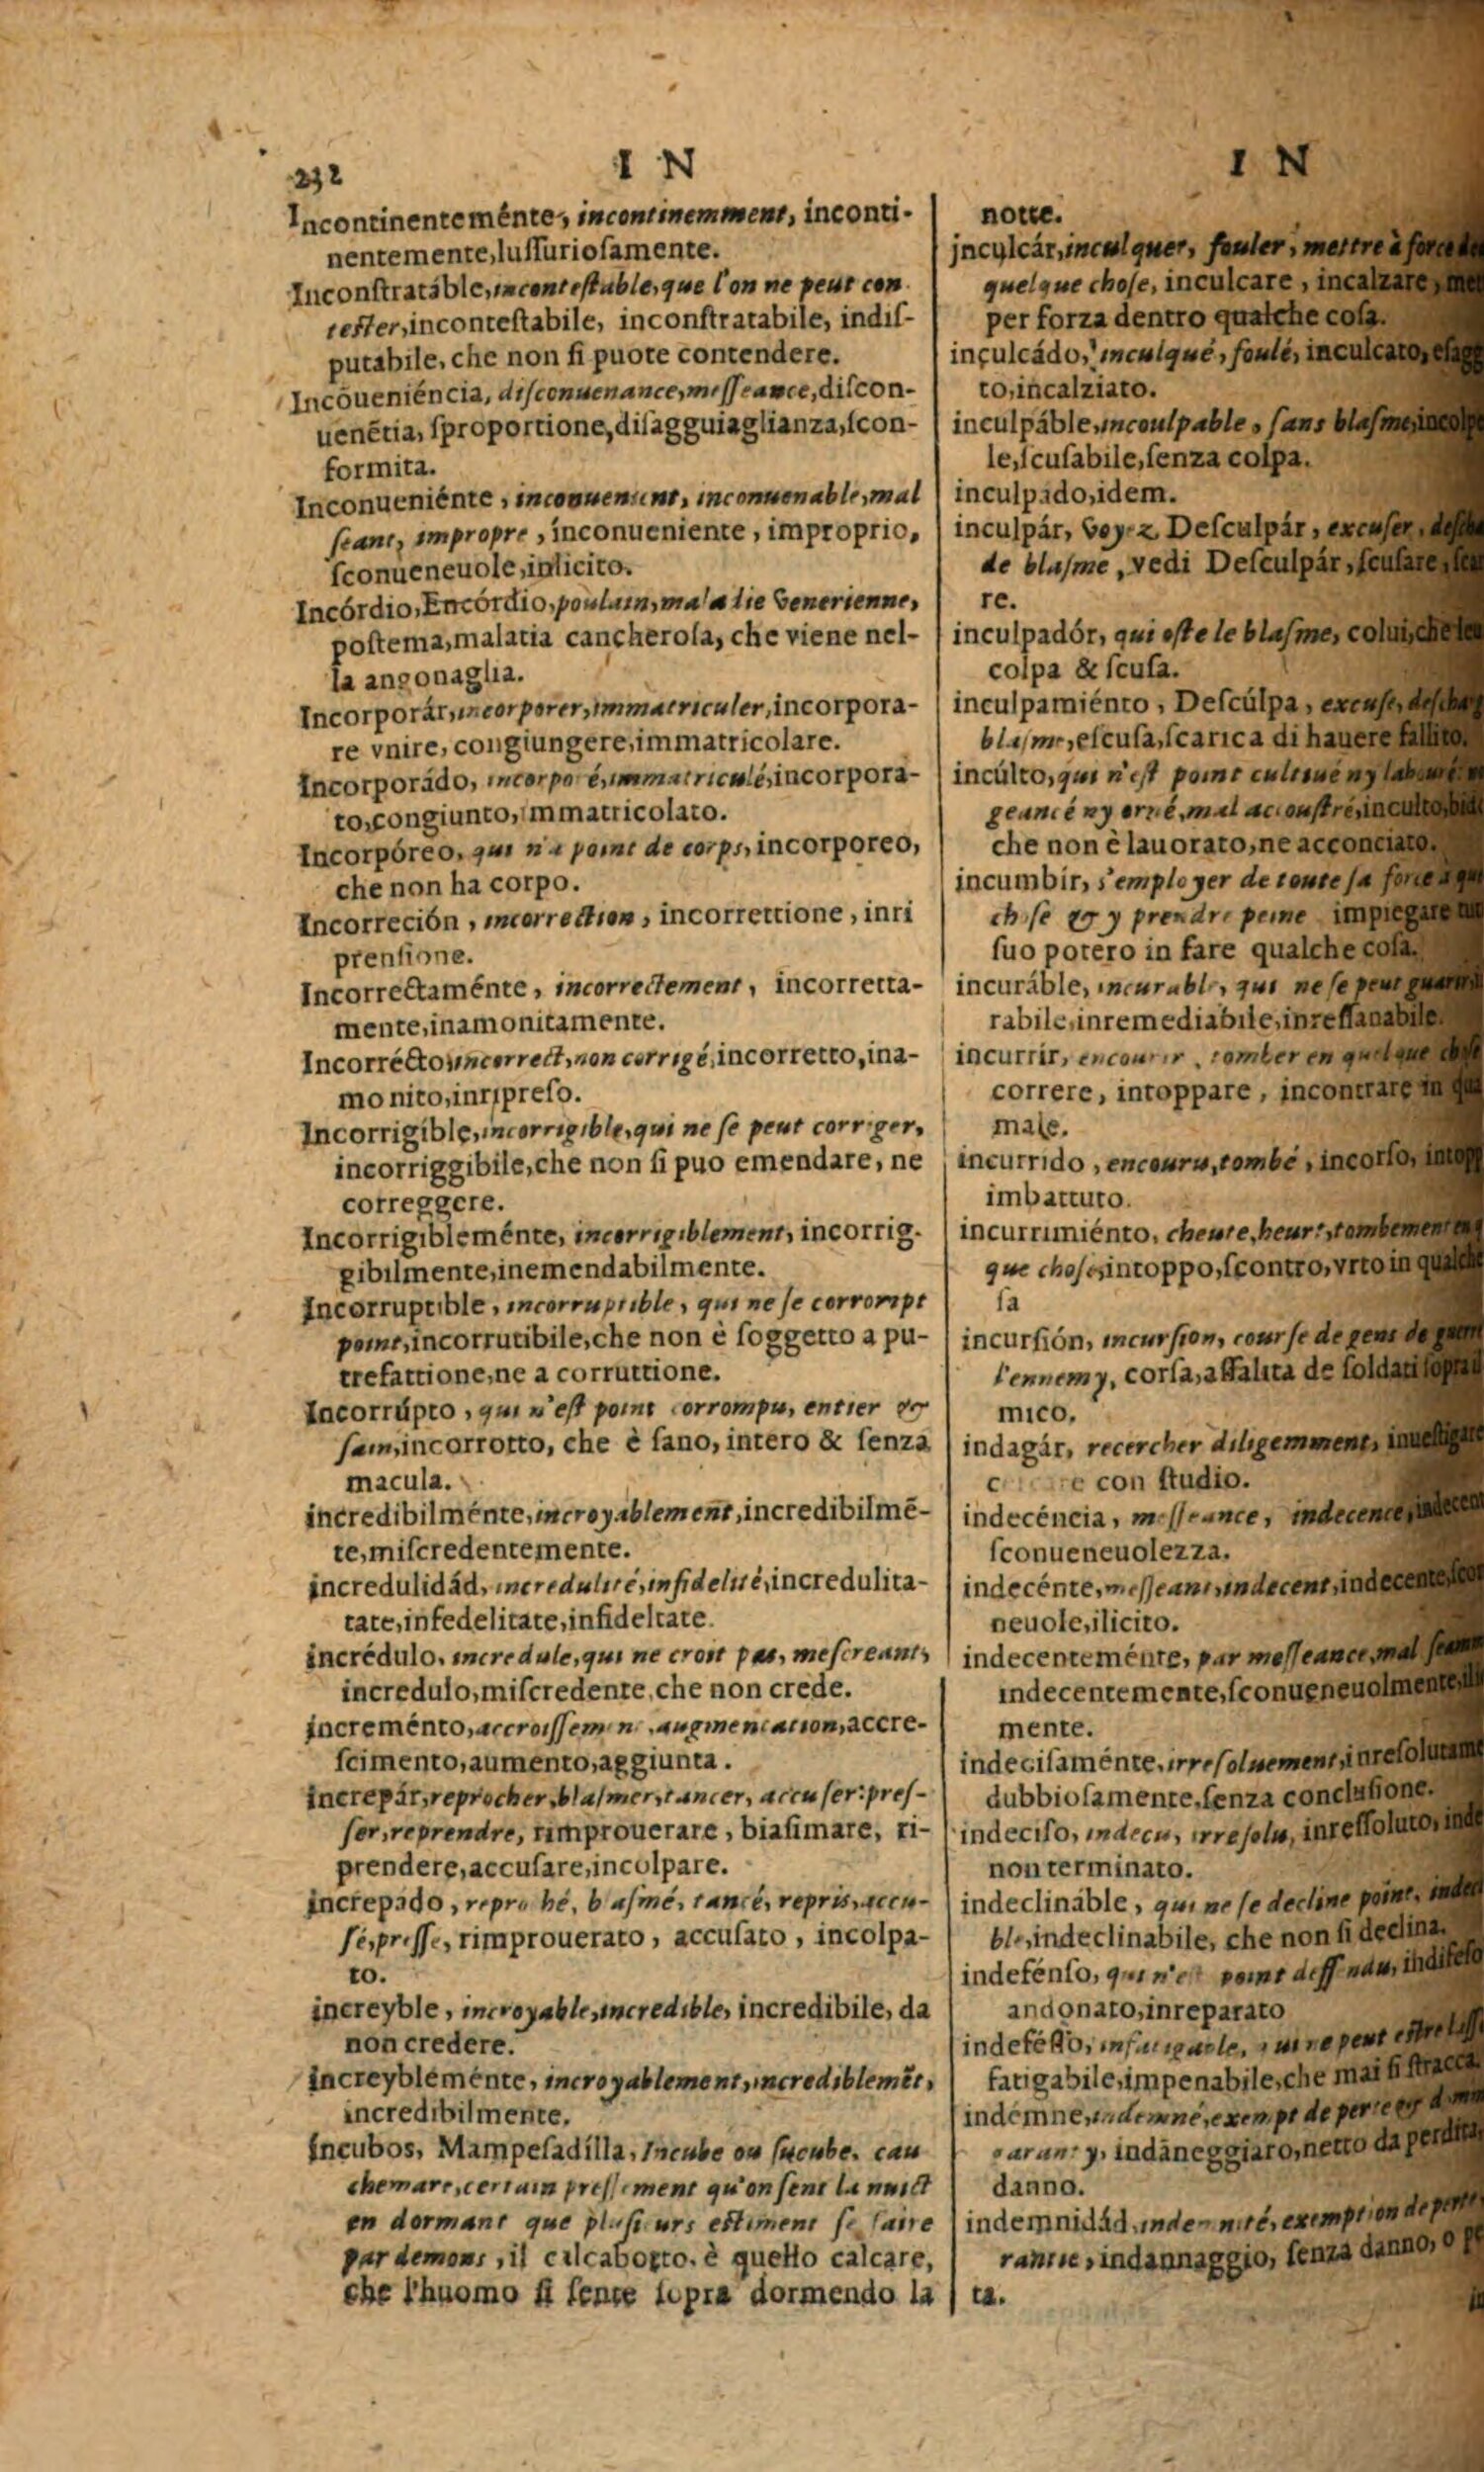 232
I N
Incontinenteménte, incontinemment, inconti-
nentemente, luſſurioſamente.
Inconſtratáble, incontestable, que l'on ne peut con
teſter, inconteſtabile, inconſtratabile, indiſ-
putabile, che non ſi puote contendere.
Incõueniéncia, diſconuenance, meſſeance, diſcon-
uenẽtia, ſproportione, diſagguiaglianza, ſcon-
formita.
Inconueniénte, inconuenient, inconuenable, mal
ſeant, impropre, inconueniente, improprio,
ſconueneuole, inlicito.
Incórdio, Encórdio, poulain, maladie Venerienne,
poſtema, malatia cancheroſa, che viene nel-
la angonaglia.
Incorporár, incorporer, immatriculer, incorpora-
re vnire, congiungere, immatricolare.
Incorporádo, incorporé, immatriculé, incorpora-
to, congiunto, immatricolato.
Incorpóreo, qui n'a point de corps, incorporeo,
che non ha corpo.
Incorreción, incorrection, incorrettione, inri
prenſione.
Incorrectaménte, incorrectement, incorretta-
mente, inamonitamente.
Incorrécto, incorrect, non corrigé, incorretto, ina-
monito, inripreſo.
Incorrigible, incorrigible, qui ne ſe peut corriger,
incorriggibile, che non ſi puo emendare, ne
correggere.
Incorrigibleménte, incorrigiblement, incorrig-
gibilmente, inemendabilmente.
Incorruptible, incorruptible, qui ne ſe corrompt
point, incorrutibile, che non è ſoggetto a pu-
trefattione, ne a corruttione.
Incorrúpto, qui n'eſt point corrompu, entier &
ſain, incorrotto, che è ſano, intero & ſenza
macula.
incredibilménte, incroyablement, incredibilmẽ-
te, miſcredentemente.
incredulidád, incredulité, infidelité, incredulita-
tate, infedelitate, infideltate.
incrédulo, incredule, qui ne croit pas, meſcreant,
incredulo, miſcredente, che non crede.
increménto, accroiſſement, augmentation, accre-
ſcimento, aumento, aggiunta.
increpár, reprocher, blaſmer, tancer, accuſer: preſ-
ſer, reprendre, rimprouerare, biaſimare, ri-
prendere, accuſare, incolpare.
increpádo, reproché, blaſmé, tancé, repris, accu-
ſé, preſſé, rimprouerato, accuſato, incolpa-
to.
increyble, incroyable, incredible, incredibile, da
non credere.
increybleménte, incroyablement, incrediblemẽt,
incredibilmente.
Íncubos, Mampeſadílla, Incube ou ſucube, cau
chemare, certain preſſement qu'on ſent la nuict
en dormant que pluſieurs eſtiment ſe faire
par demons, il calcabotto. è quello calcare,
che l'huomo ſi ſente ſopra dormendo la
I N
notte.
inculcár, inculquer, fouler, mettre à force de
quelque choſe, inculcare, incalzare,
per forza dentro qualche coſa.
inculcádo, inculqué, foulé, inculcato,
to, incalziato.
inculpáble, incoulpable, ſans blaſme,
le, ſcuſabile, ſenza colpa.
inculpádo, idem.
inculpár, Voyez Deſculpár, excuſer,
de blaſme, vedi Deſculpár, ſcuſare,
re.
inculpadór, qui oſte le blaſme, colui, che
colpa & ſcuſa.
inculpamiénto, Deſcúlpa, excuſe,
blaſme, eſcuſa, ſcarica di hauere fallito.
incúlto, qui n'eſt point cultiué ny labouré
geancé ny orné, mal accouſtré, inculto,
che non è lauorato, ne acconciato.
incumbír, s'employer de toute ſa force à
choſe & y prendre peine impiegare
ſuo potero in fare qualche coſa.
incuráble, incurable, qui ne ſe peut guarir,
rabile, inremediabile, inreſſanabile.
incurrír, encourir, tomber en quelque choſe
correre, intoppare, incontrare in
male.
incurrido, encouru, tombé, incorſo,
imbattuto.
incurrimiénto, cheute, heurt, tombement en
que choſe, intoppo, ſcontro, vrto in qualche
ſa
incurſión, incurſion, courſe de gens de
l'ennemy, corſa, aſſalita de ſoldati ſopra
mico.
indagár, recercher diligemment, inueſtigare
con ſtudio.
indecéncia, meſſeance, indecence,
ſconueneuolezza.
indecénte, meſſeant, indecent, indecente,
neuole, ilicito.
indecenteménte, par meſſeance, mal
indecentemente, ſconueneuolmente,
mente.
indeciſaménte, irreſoluement,
dubbioſamente, ſenza concluſione.
indeciſo, indecis, irreſolu, inreſſoluto,
non terminato.
indeclináble, qui ne ſe decline point,
ble, indeclinabile, che non ſi declina.
indefénſo, qui n'eſt point deffendu,
andonato, inreparato
indeféſſo, infatigable, qui ne peut eſtre
fatigabile, impenabile, che mai ſi ſtracca.
indémne, indemné, exempt de perte &
garanty, indãneggiaro, netto da perdita,
danno.
indemnidád, indemnité, exemption de
rantie, indannaggio, ſenza danno, o
ta.